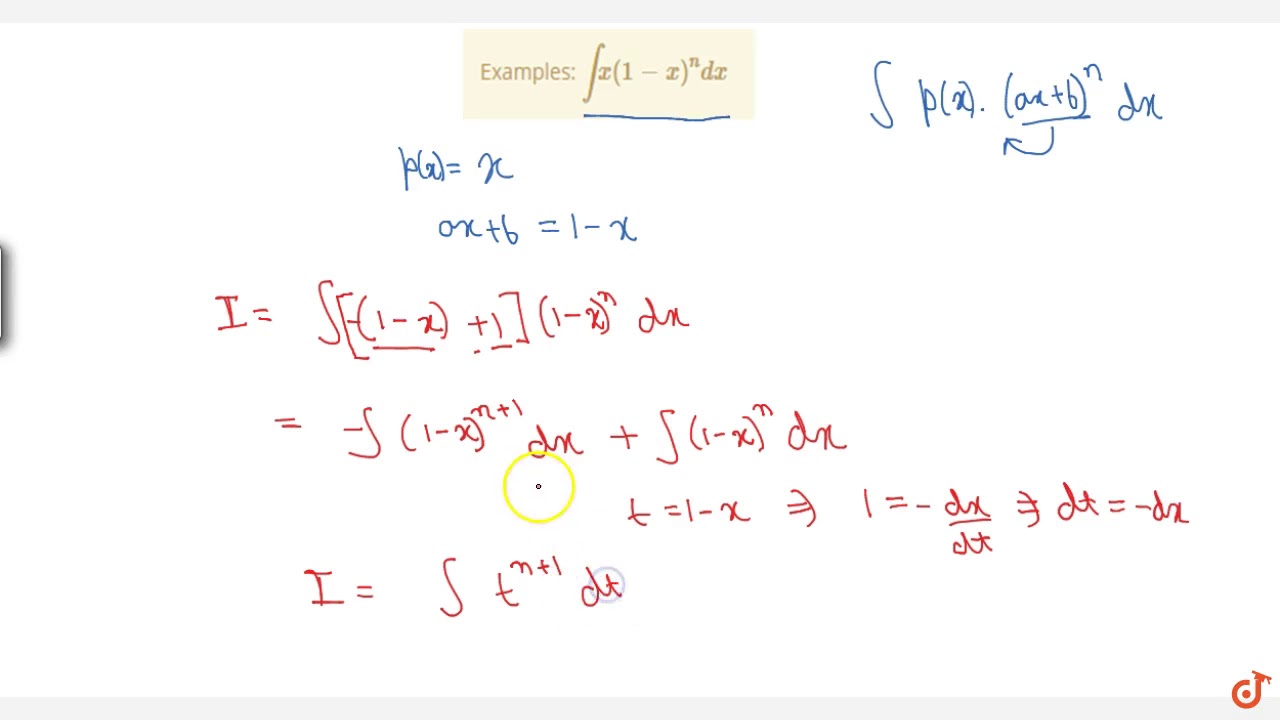 Examples: ∫x(1 − x)ⁿdx
∫ p(x). (ax+b)ⁿ dx
p(x)= x
ax+b = 1-x
I = ∫[-(1-x) +1] (1-x)ⁿ dx
= -∫ (1-x)ⁿ⁺¹ dx + ∫ (1-x)ⁿ dx
t = 1-x ⇒ 1 = - dx/dt ⇒ dt = -dx
I = ∫ tⁿ⁺¹ dt